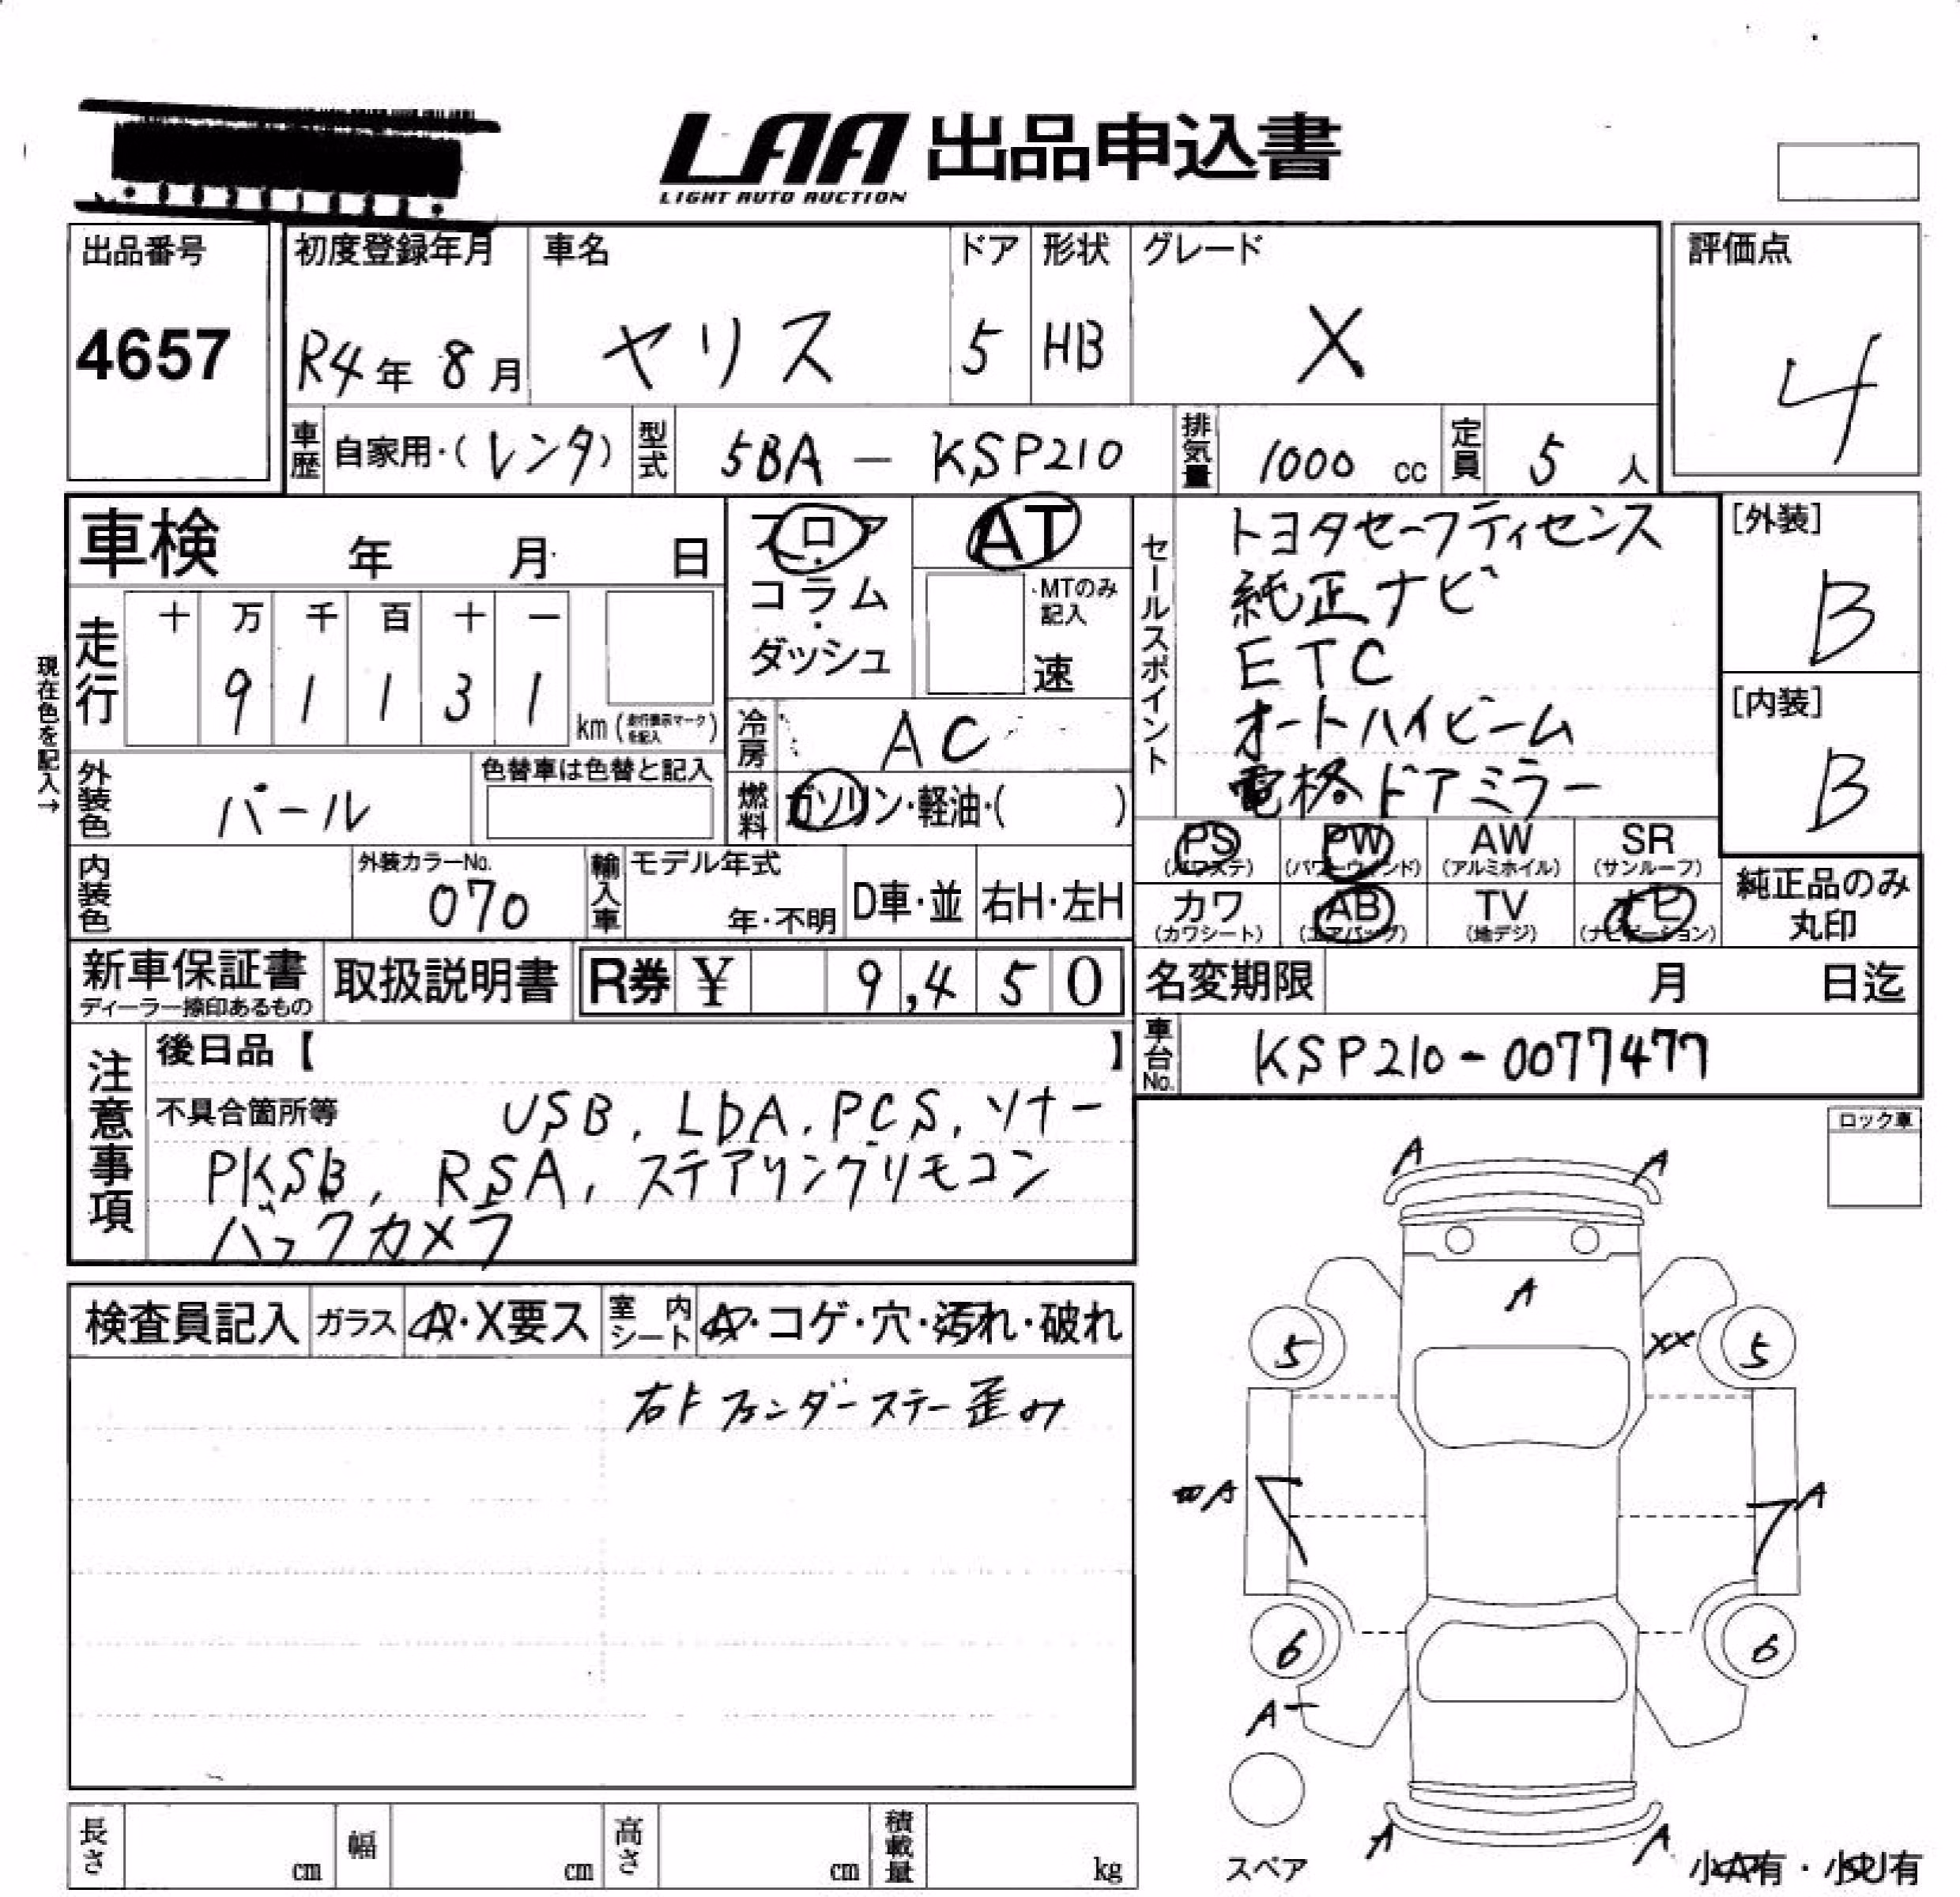 LAA 出品申込書
LIGHT AUTO AUCTION
出品番号
4657
初度登録年月
R4年 8月
車名
ヤリス
ドア
5
形状
HB
グレード
X
評価点
4
車歴 自家用・(レンタ)
型式 5BA - KSP210
排気量 1000 cc
定員 5 人
車検 年 月 日
フロア
コラム
ダッシュ
AT
MTのみ記入
速
セールスポイント
トヨタセーフティセンス
純正ナビ
ETC
オートハイビーム
電格ドアミラー
[外装]
B
[内装]
B
走行
十 万 千 百 十 一
9 1 1 3 1
km (走行表示マークを記入)
現在色を記入→
冷房 AC
外装色 パール
色替車は色替と記入
燃料 ガソリン・軽油・( )
PS (パワステ)
PW (パワーウインド)
AW (アルミホイル)
SR (サンルーフ)
カワ (カワシート)
AB (エアバッグ)
TV (地デジ)
ナビ (ナビゲーション)
純正品のみ
丸印
内装色
外装カラーNo.
070
輸入車
モデル年式
年・不明
D車・並
右H・左H
新車保証書
ディーラー捺印あるもの
取扱説明書
R券 ¥ 9,450
名変期限 月 日迄
車台No. KSP210-0077477
注意事項
後日品【 】
不具合箇所等 USB, LDA, PCS, ソナー
PKSB, RSA, ステアリングリモコン
バックカメラ
ロック車
検査員記入
ガラス
A・X要ス
室内シート
A・コゲ・穴・汚れ・破れ
右Fフェンダーステー歪み
A A
A
5 XX 5
A A
6 6
A
A A
スペア
小A有・小U有
長さ cm
幅 cm
高さ cm
積載量 kg